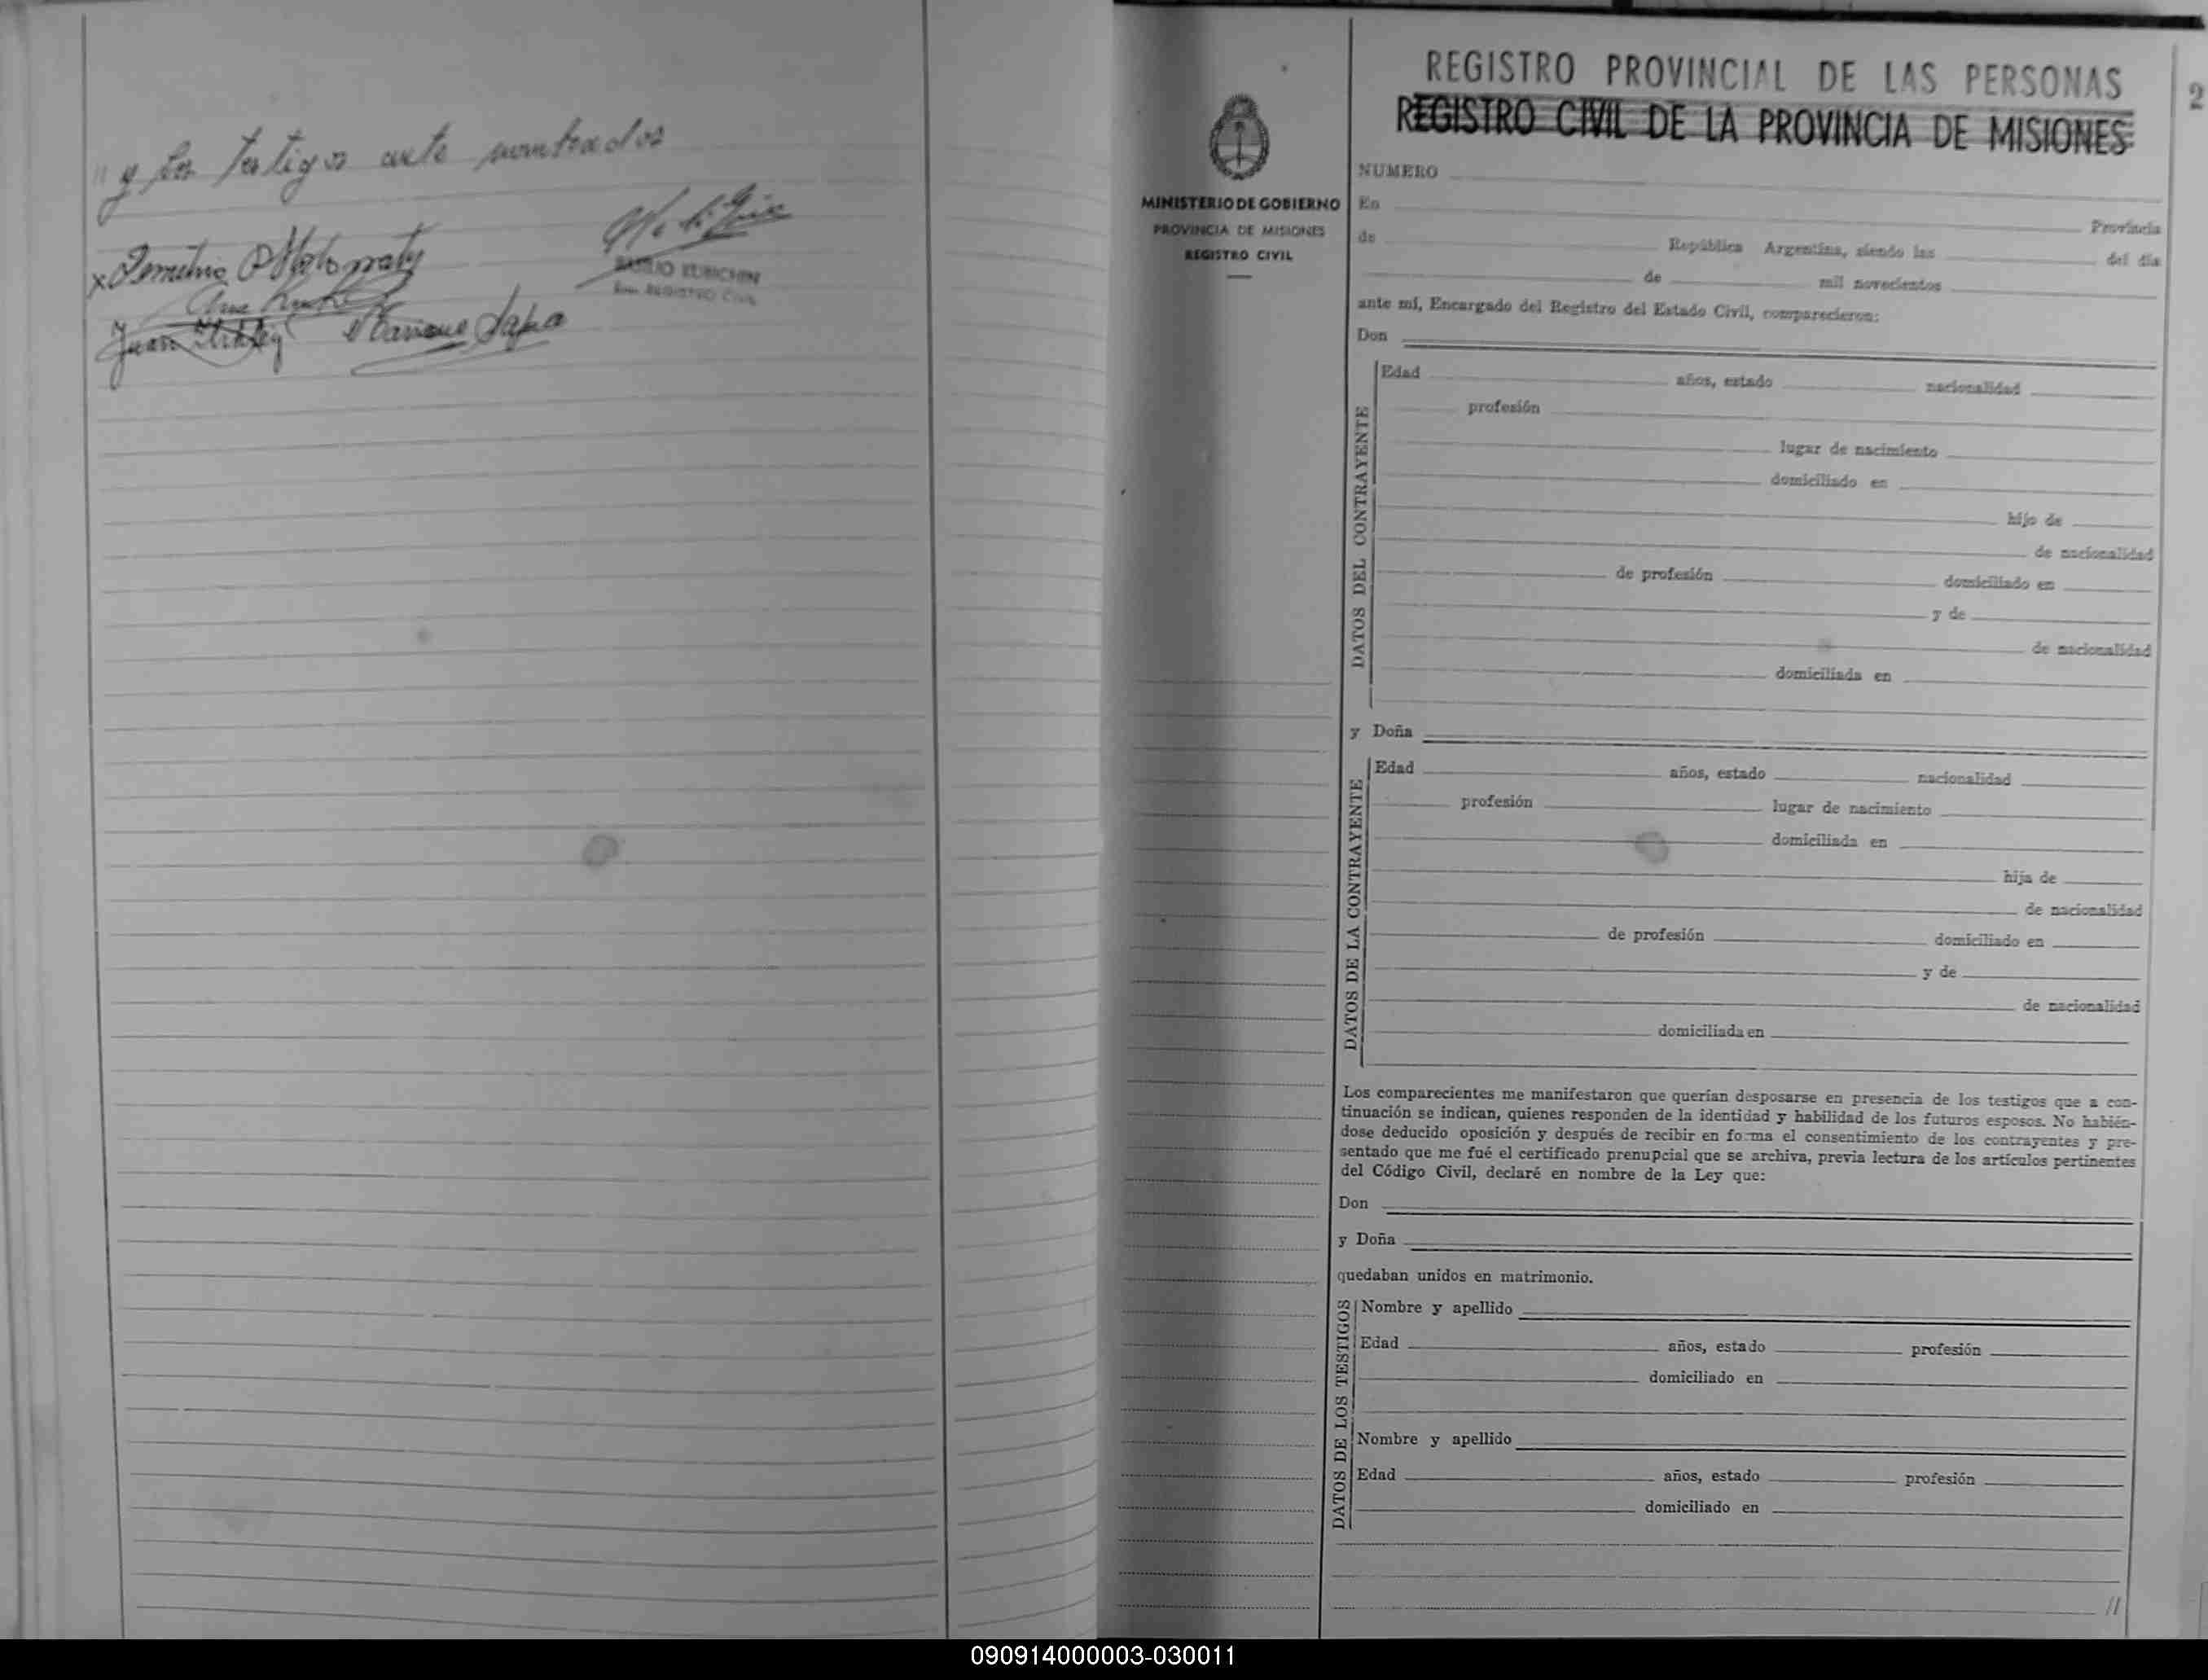 " y los testigos ante nombrados
Juan
Enrique
REGISTRO CIVIL
MINISTERIO DE GOBIERNO
PROVINCIA DE MISIONES
REGISTRO CIVIL
REGISTRO PROVINCIAL DE LAS PERSONAS
2
REGISTRO CIVIL DE LA PROVINCIA DE MISIONES
NUMERO
En Provincia
de República Argentina, siendo las del día
de mil novecientos
ante mí, Encargado del Registro del Estado Civil, comparecieron:
Don
DATOS DEL CONTRAYENTE
Edad años, estado nacionalidad
profesión
lugar de nacimiento
domiciliado en
hijo de
de nacionalidad
de profesión domiciliado en
y de
de nacionalidad
domiciliada en
y Doña
DATOS DE LA CONTRAYENTE
Edad años, estado nacionalidad
profesión lugar de nacimiento
domiciliada en
hija de
de nacionalidad
de profesión domiciliado en
y de
de nacionalidad
domiciliada en
Los comparecientes me manifestaron que querían desposarse en presencia de los testigos que a con-
tinuación se indican, quienes responden de la identidad y habilidad de los futuros esposos. No habién-
dose deducido oposición y después de recibir en forma el consentimiento de los contrayentes y pre-
sentado que me fué el certificado prenupcial que se archiva, previa lectura de los artículos pertinentes
del Código Civil, declaré en nombre de la Ley que:
Don
y Doña
quedaban unidos en matrimonio.
DATOS DE LOS TESTIGOS
Nombre y apellido
Edad años, estado profesión
domiciliado en
Nombre y apellido
Edad años, estado profesión
domiciliado en
//
090914000003-030011